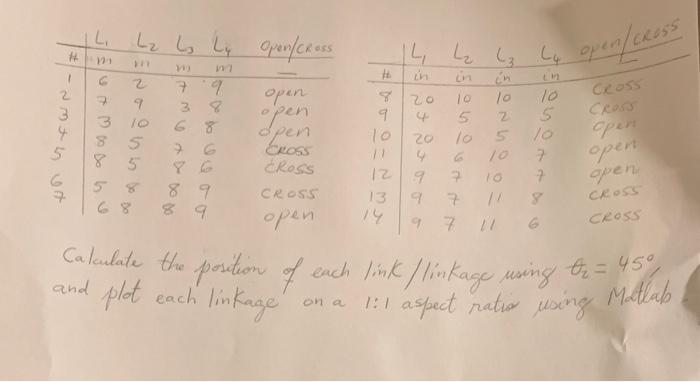 L1 L2 L3 L4 open/cross
# m m m m —
1 6 2 7 9 open
2 7 9 3 8 open
3 3 10 6 8 open
4 8 5 7 6 cross
5 8 5 8 6 cross
6 5 8 8 9 cross
7 6 8 8 9 open
L1 L2 L3 L4 open/cross
# in in in in —
8 20 10 10 10 cross
9 4 5 2 5 cross
10 20 10 5 10 open
11 4 6 10 7 open
12 9 7 10 7 open
13 9 7 11 8 cross
14 9 7 11 6 cross
Calculate the position of each link/linkage using θ2 = 45°,
and plot each linkage on a 1:1 aspect ratio using Matlab